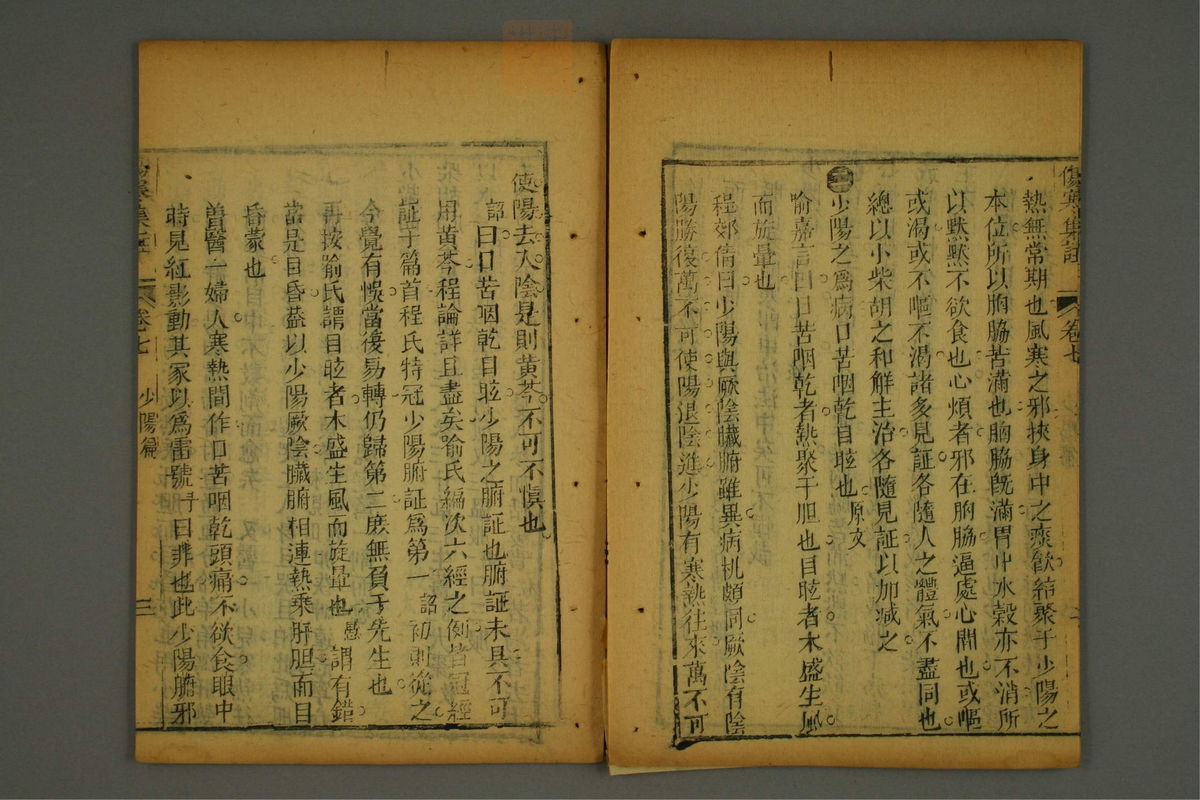 傷寒集註
卷七
熱無常期也風寒之邪挾身中之痰飲結聚于少陽之
本位所以胸脇苦滿也胸脇旣滿胃中水穀亦不消所
以默默不欲食也心煩者邪在胸脇逼處心間也或嘔
或渴或不嘔不渴諸多見証各隨人之體氣不盡同也
總以小柴胡之和解主治各隨見証以加减之
少陽之爲病口苦咽乾目眩也原文
喻嘉言曰口苦咽乾者熱聚于胆也目眩者木盛生風
而旋暈也
程郊倩曰少陽與厥陰臟腑雖異病机頗同厥陰有陰
陽勝復萬不可使陽退陰進少陽有寒熱徃來萬不可
使陽去入陰是則黃芩不可不愼也
詔曰口苦咽乾目眩少陽之腑証也腑証未具不可
用黃芩程論詳且盡矣喻氏編次六經之例皆冠經
証于篇首程氏特冠少陽腑証爲第一詔初則從之
今覺有悞當復易轉仍歸第二庶無負于先生也
再按喻氏謂目眩者木盛生風而旋暈也愚謂有錯
當是目昏葢以少陽厥陰臟腑相連熱乘肝胆而目
昏蒙也
嘗醫一婦人寒熱間作口苦咽乾頭痛不欲食眼中
時見紅影動其家以爲雷號予曰非也此少陽腑邪
卷七
少陽篇
三